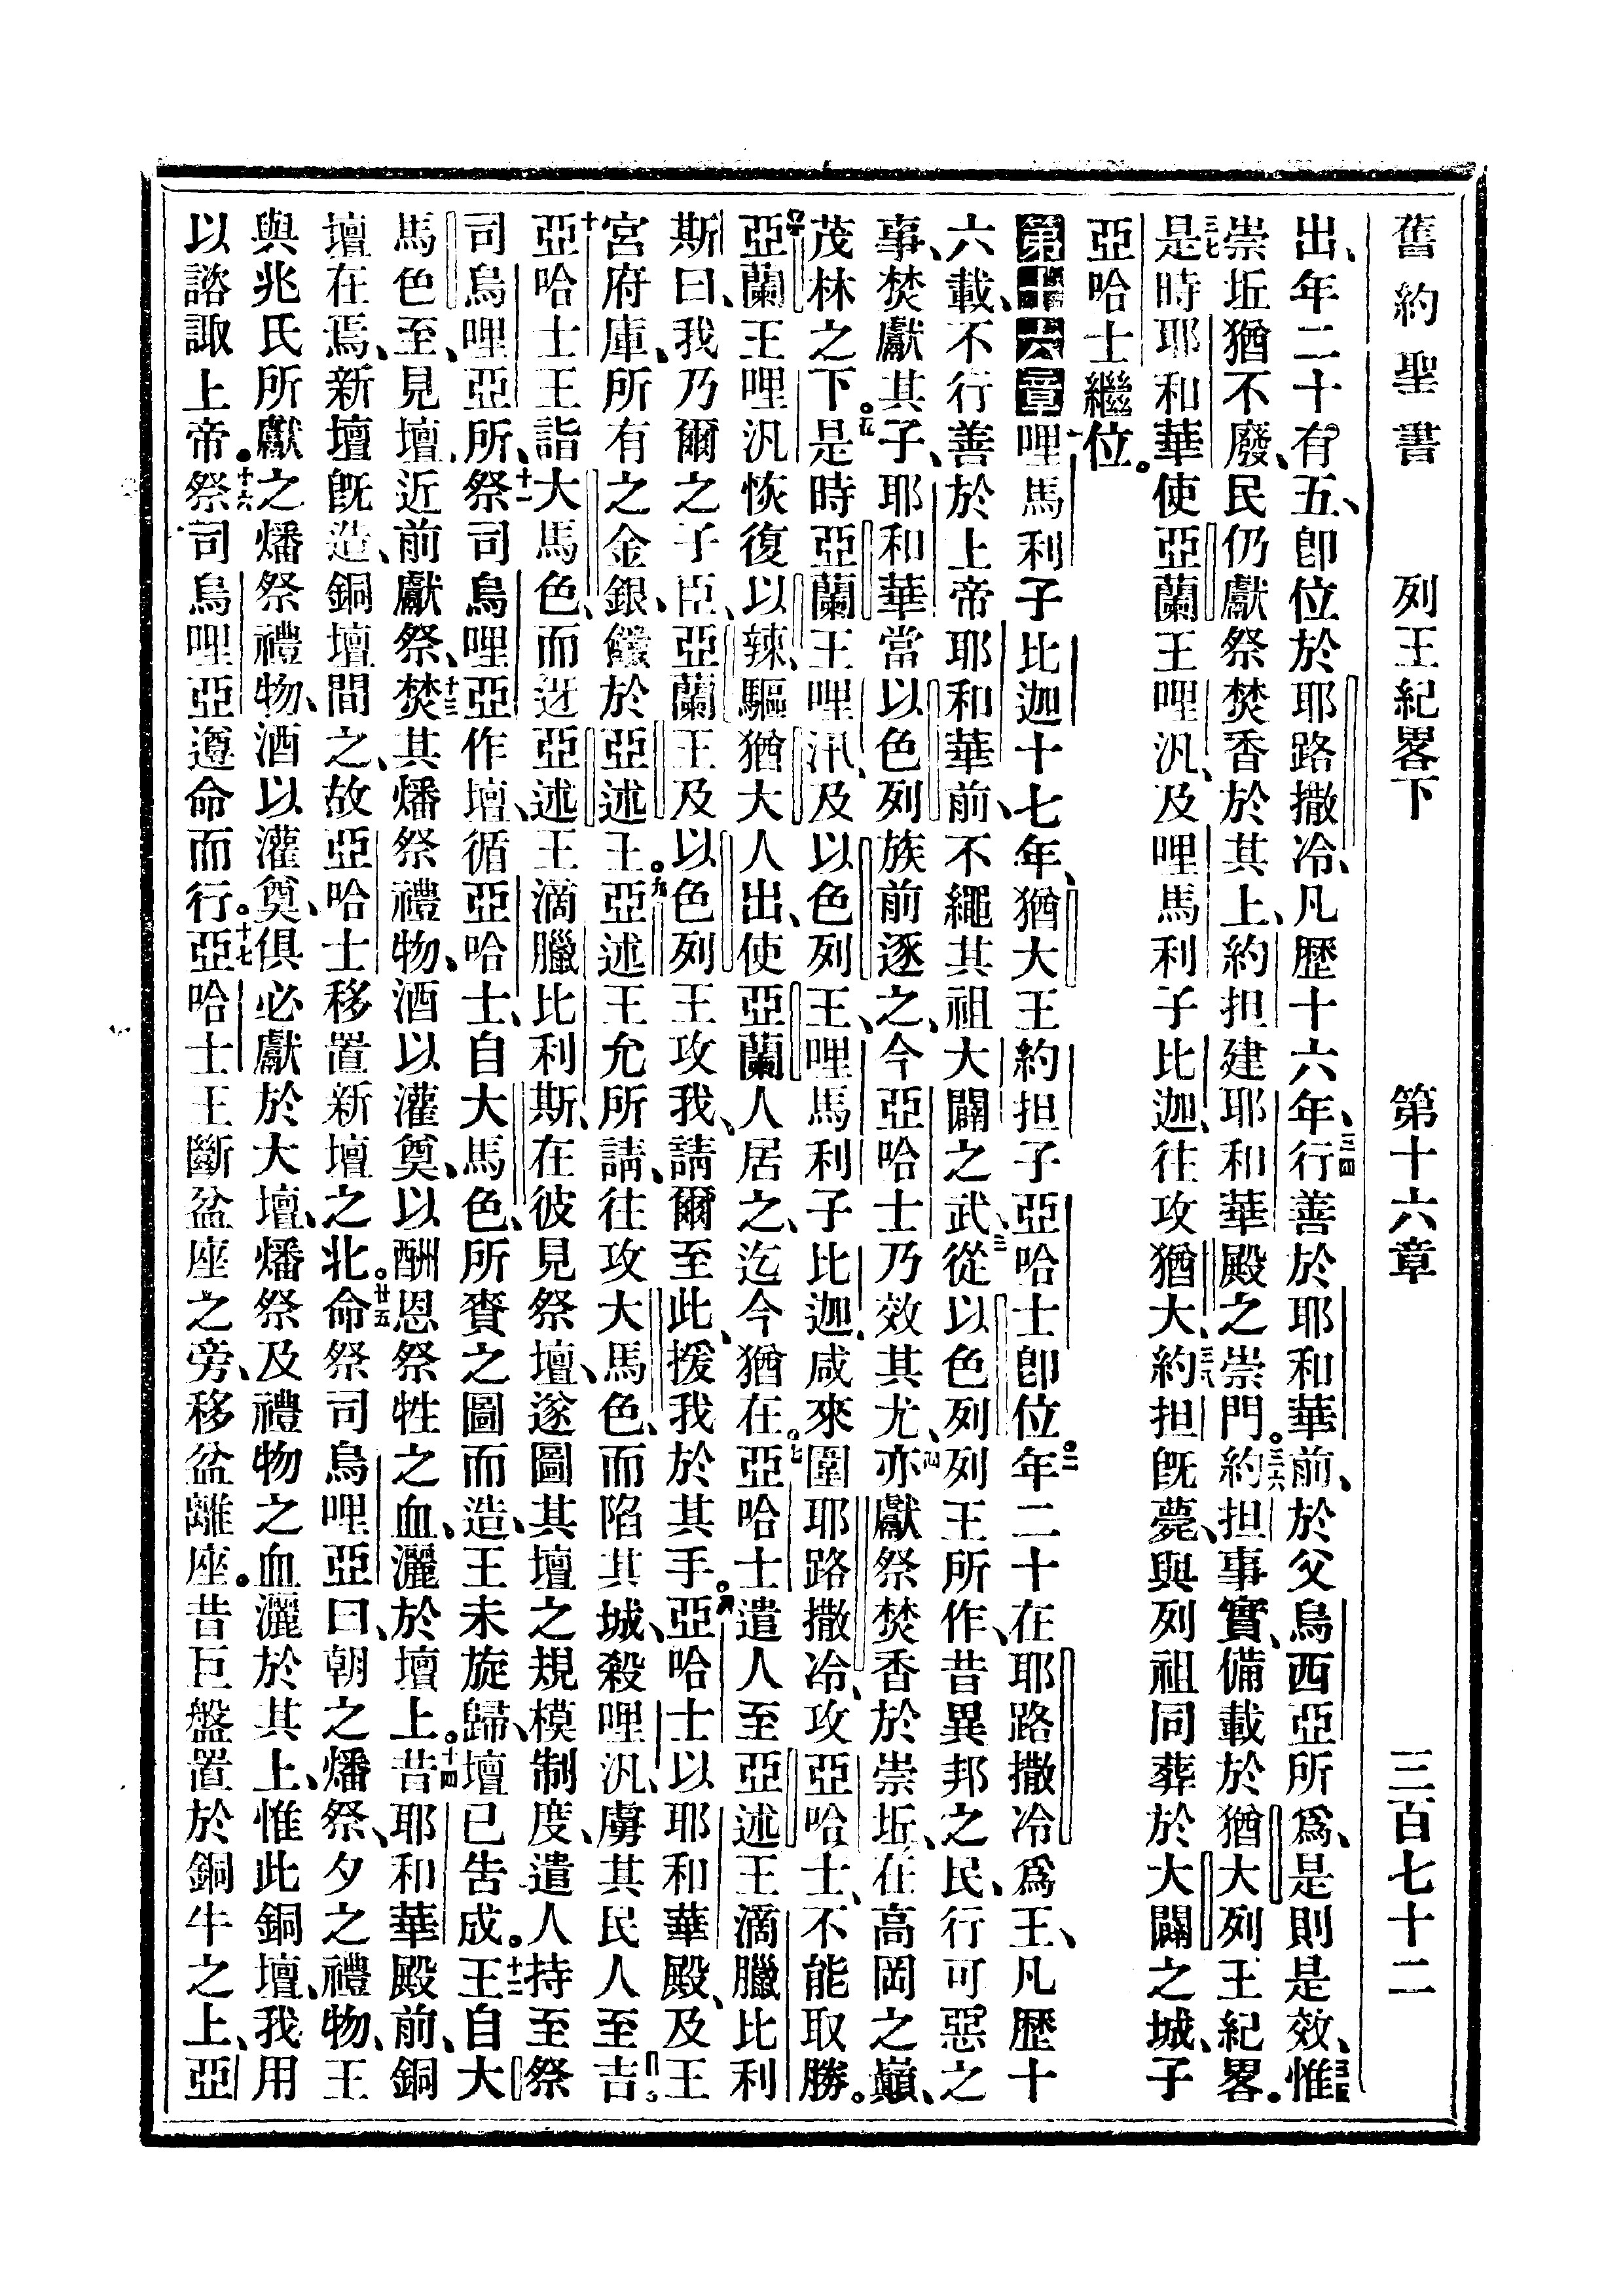 舊約聖書 列王紀畧下 第十六章 三百七十二
出、年二十有五、卽位於耶路撒冷、凡歷十六年、三四行善於耶和華前、於父烏西亞所爲、是則是效、三五惟
崇坵猶不廢、民仍獻祭焚香於其上、約担建耶和華殿之崇門。三六約担事實、備載於猶大列王紀畧。
三七是時耶和華使亞蘭王哩汎、及哩馬利子比迦、往攻猶大、三八約担旣薨、與列祖同葬於大闢之城、子
亞哈士繼位。
第十六章一哩馬利子比迦十七年、猶大王約担子亞哈士卽位。二年二十在耶路撒冷爲王、凡歷十
六載、不行善於上帝耶和華前、不繩其祖大闢之武、三從以色列列王所作、昔異邦之民、行可惡之
事、焚獻其子、耶和華當以色列族前逐之、今亞哈士乃效其尤、四亦獻祭焚香於崇坵、在高岡之巔、
茂林之下。五是時亞蘭王哩汎、及以色列王、哩馬利子比迦、咸來圍耶路撒冷、攻亞哈士、不能取勝。
六亞蘭王哩汎恢復以辣、驅猶大人出、使亞蘭人居之、迄今猶在。七亞哈士遣人至亞述王滴臘比利
斯曰、我乃爾之子臣、亞蘭王及以色列王攻我、請爾至此、援我於其手。八亞哈士以耶和華殿、及王
宮府庫、所有之金銀、餽於亞述王。九亞述王允所請、往攻大馬色、而陷其城、殺哩汎、虜其民人至吉。
十亞哈士王詣大馬色、而迓亞述王滴臘比利斯、在彼見祭壇、遂圖其壇之規模制度、遣人持至祭
司烏哩亞所、十一祭司烏哩亞作壇、循亞哈士、自大馬色、所賫之圖而造、王未旋歸、壇已告成。十二王自大
馬色至、見壇、近前獻祭、十三焚其燔祭禮物、酒以灌奠、以酬恩祭牲之血、灑於壇上。十四昔耶和華殿前、銅
壇在焉、新壇旣造、銅壇間之、故亞哈士移置新壇之北。廿五命祭司烏哩亞曰、朝之燔祭、夕之禮物、王
與兆氏所獻之燔祭禮物、酒以灌奠、俱必獻於大壇、燔祭及禮物之血、灑於其上、惟此銅壇、我用
以諮諏上帝。十六祭司烏哩亞遵命而行。十七亞哈士王斷盆座之旁、移盆離座。昔巨盤置於銅牛之上、亞